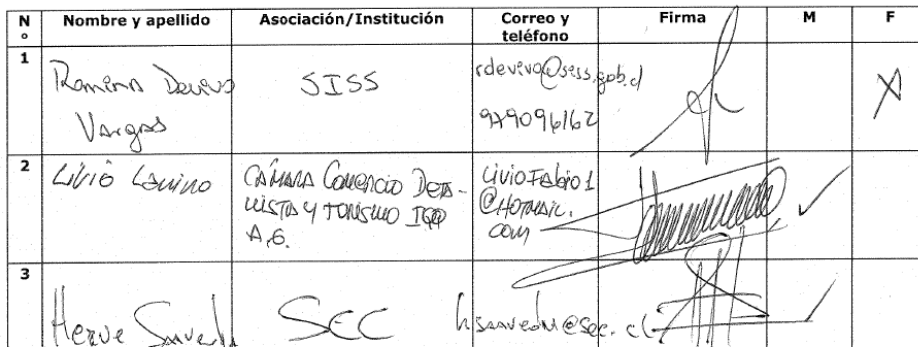 N° Nombre y apellido Asociación/Institución Correo y teléfono Firma M F
1 Romina Devevo Vargas SISS rdevevo@siss.gob.cl 979096162 X
2 Livio Lavino CÁMARA COMERCIO DETALLISTA Y TURISMO IQQ A.G. LIVIOFABIO1@HOTMAIL.COM ✓
3 Herve SEC hsaavedra@sec.cl